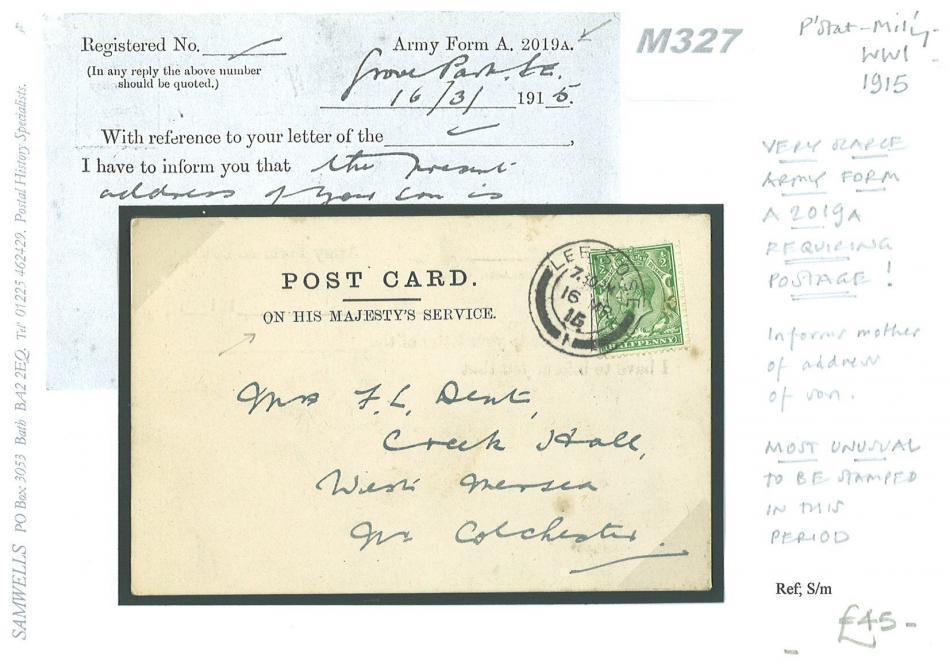 Registered No.
Army Form A. 2019A.
(In any reply the above number
should be quoted.)
Grove Park. S.E.
16/3/ 1915.
With reference to your letter of the
I have to inform you that the present
address of your son is
M327
P'Stat-Mil'y-
WWI
1915
VERY SCARCE
ARMY FORM
A 2019A
REQUIRING
POSTAGE!
Informs mother
of address
of son.
MOST UNUSUAL
TO BE STAMPED
IN THIS
PERIOD
Ref; S/m
£45-
POST CARD.
ON HIS MAJESTY'S SERVICE.
LEE S.O. S.E.
16 MR
15
HALFPENNY
Mrs F. L. Dent,
Creek Hall,
West Mersea
Nr Colchester.
SAMWELLS PO Box 3053 Bath BA2 2EQ. Tel 01225 462429. Postal History Specialists.